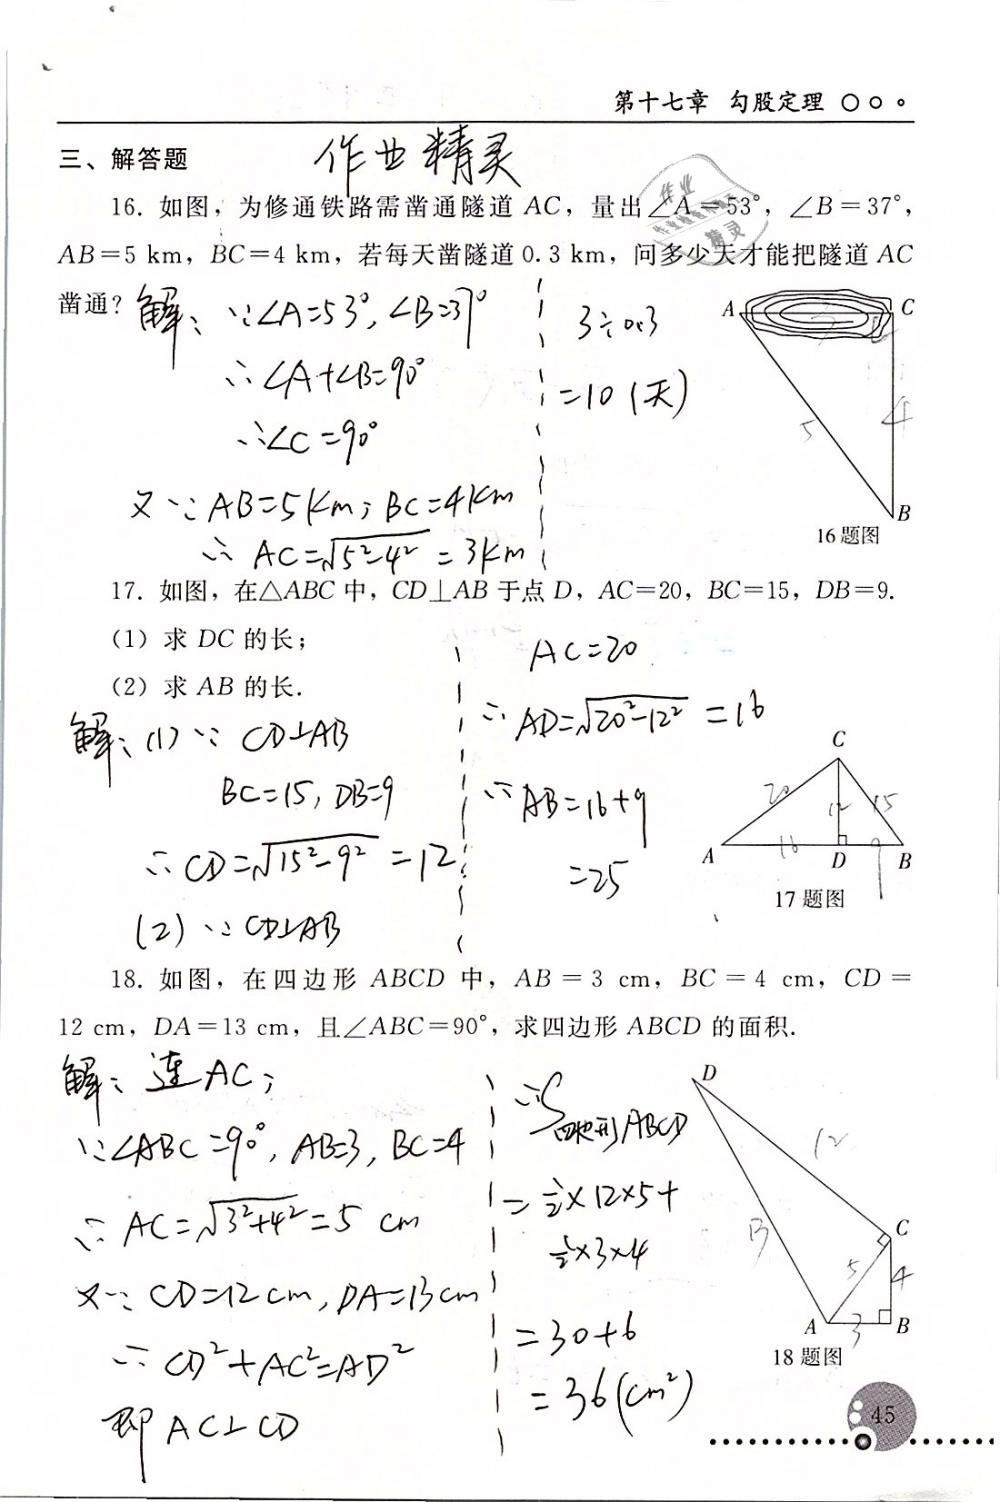 第十七章 勾股定理
三、解答题
作业精灵
16. 如图，为修通铁路需凿通隧道 AC，量出∠A=53°，∠B=37°，
AB=5 km，BC=4 km，若每天凿隧道 0.3 km，问多少天才能把隧道 AC
凿通？
解：∵∠A=53°，∠B=37°
∴∠A+∠B=90°
∴∠C=90°
又∵AB=5km；BC=4km
∴AC=√5²-4² =3km
3÷0.3
=10（天）
A
C
5
4
B
16 题图
17. 如图，在△ABC 中，CD⊥AB 于点 D，AC=20，BC=15，DB=9.
（1）求 DC 的长；
（2）求 AB 的长.
解：(1)∵ CD⊥AB
BC=15，DB=9
∴CD=√15²-9² =12
(2)∵CD⊥AB
AC=20
∴AD=√20²-12² =16
∴AB=16+9
=25
C
20
12
15
A
16
D
9
B
17 题图
18. 如图，在四边形 ABCD 中，AB = 3 cm，BC = 4 cm，CD =
12 cm，DA=13 cm，且∠ABC=90°，求四边形 ABCD 的面积.
解：连AC；
∵∠ABC=90°，AB=3，BC=4
∴AC=√3²+4² =5 cm
又∵CD=12cm，DA=13cm
∴CD²+AC²=AD²
即AC⊥CD
∴S四边形ABCD
=½×12×5+
½×3×4
=30+6
=36(cm²)
D
12
13
C
5
4
A
3
B
18 题图
45